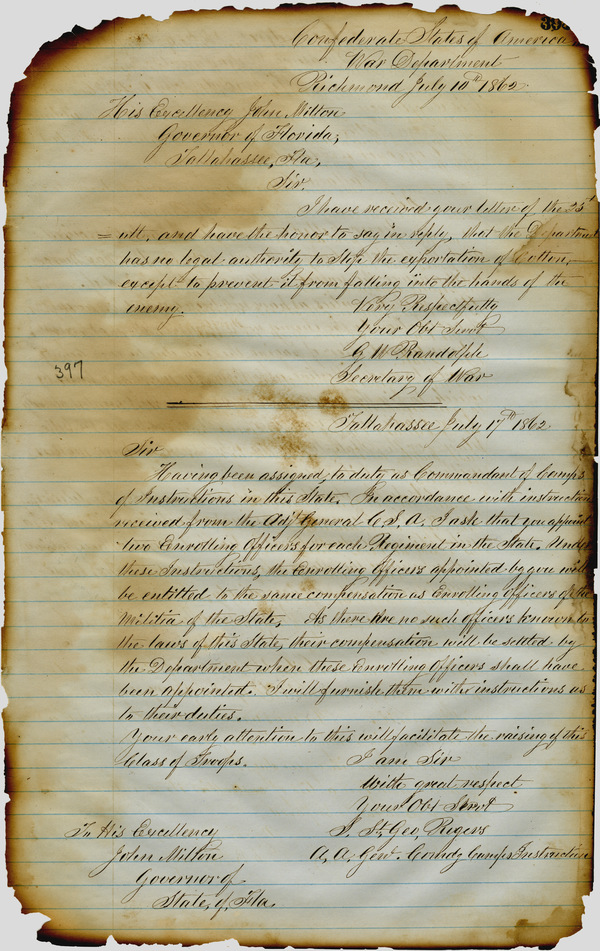 393
Confederate States of America
War Department
Richmond July 10th 1862
His Excellency John Milton
Governor of Florida,
Tallahassee, Fla,
Sir,
I have received your letter of the 25th
= ult. and have the honor to say in reply, that the Department
has no legal authority to stop the exportation of Cotton,
except to prevent it from falling into the hands of the
enemy.
Very Respectfully
Your Obt Servt
G W Randolph
Secretary of War
397
Tallahassee July 17th 1862
Sir
Having been assigned to duty as Commandant of Camps
of Instructions in this State. In accordance with instruction
received from the Adjt General C. S. A. I ask that you appoint
two Enrolling Officers for each Regiment in the State. Under
these Instructions, the Enrolling Officers appointed by you will
be entitled to the same compensation as Enrolling Officers of the
Militia of the State, As there are no such officers known to
the laws of this State, their compensation will be settled by
the Department when these Enrolling Officers shall have
been appointed. I will furnish them with instructions as
to their duties.
Your early attention to this will facilitate the raising of this
Class of Troops.
I am Sir
With great respect
Your Obt Servt
S. St. Geo Rogers
A, A, Genl. Comdg Camps Instruction
To His Excellency
John Milton
Governor of
State, of, Fla.